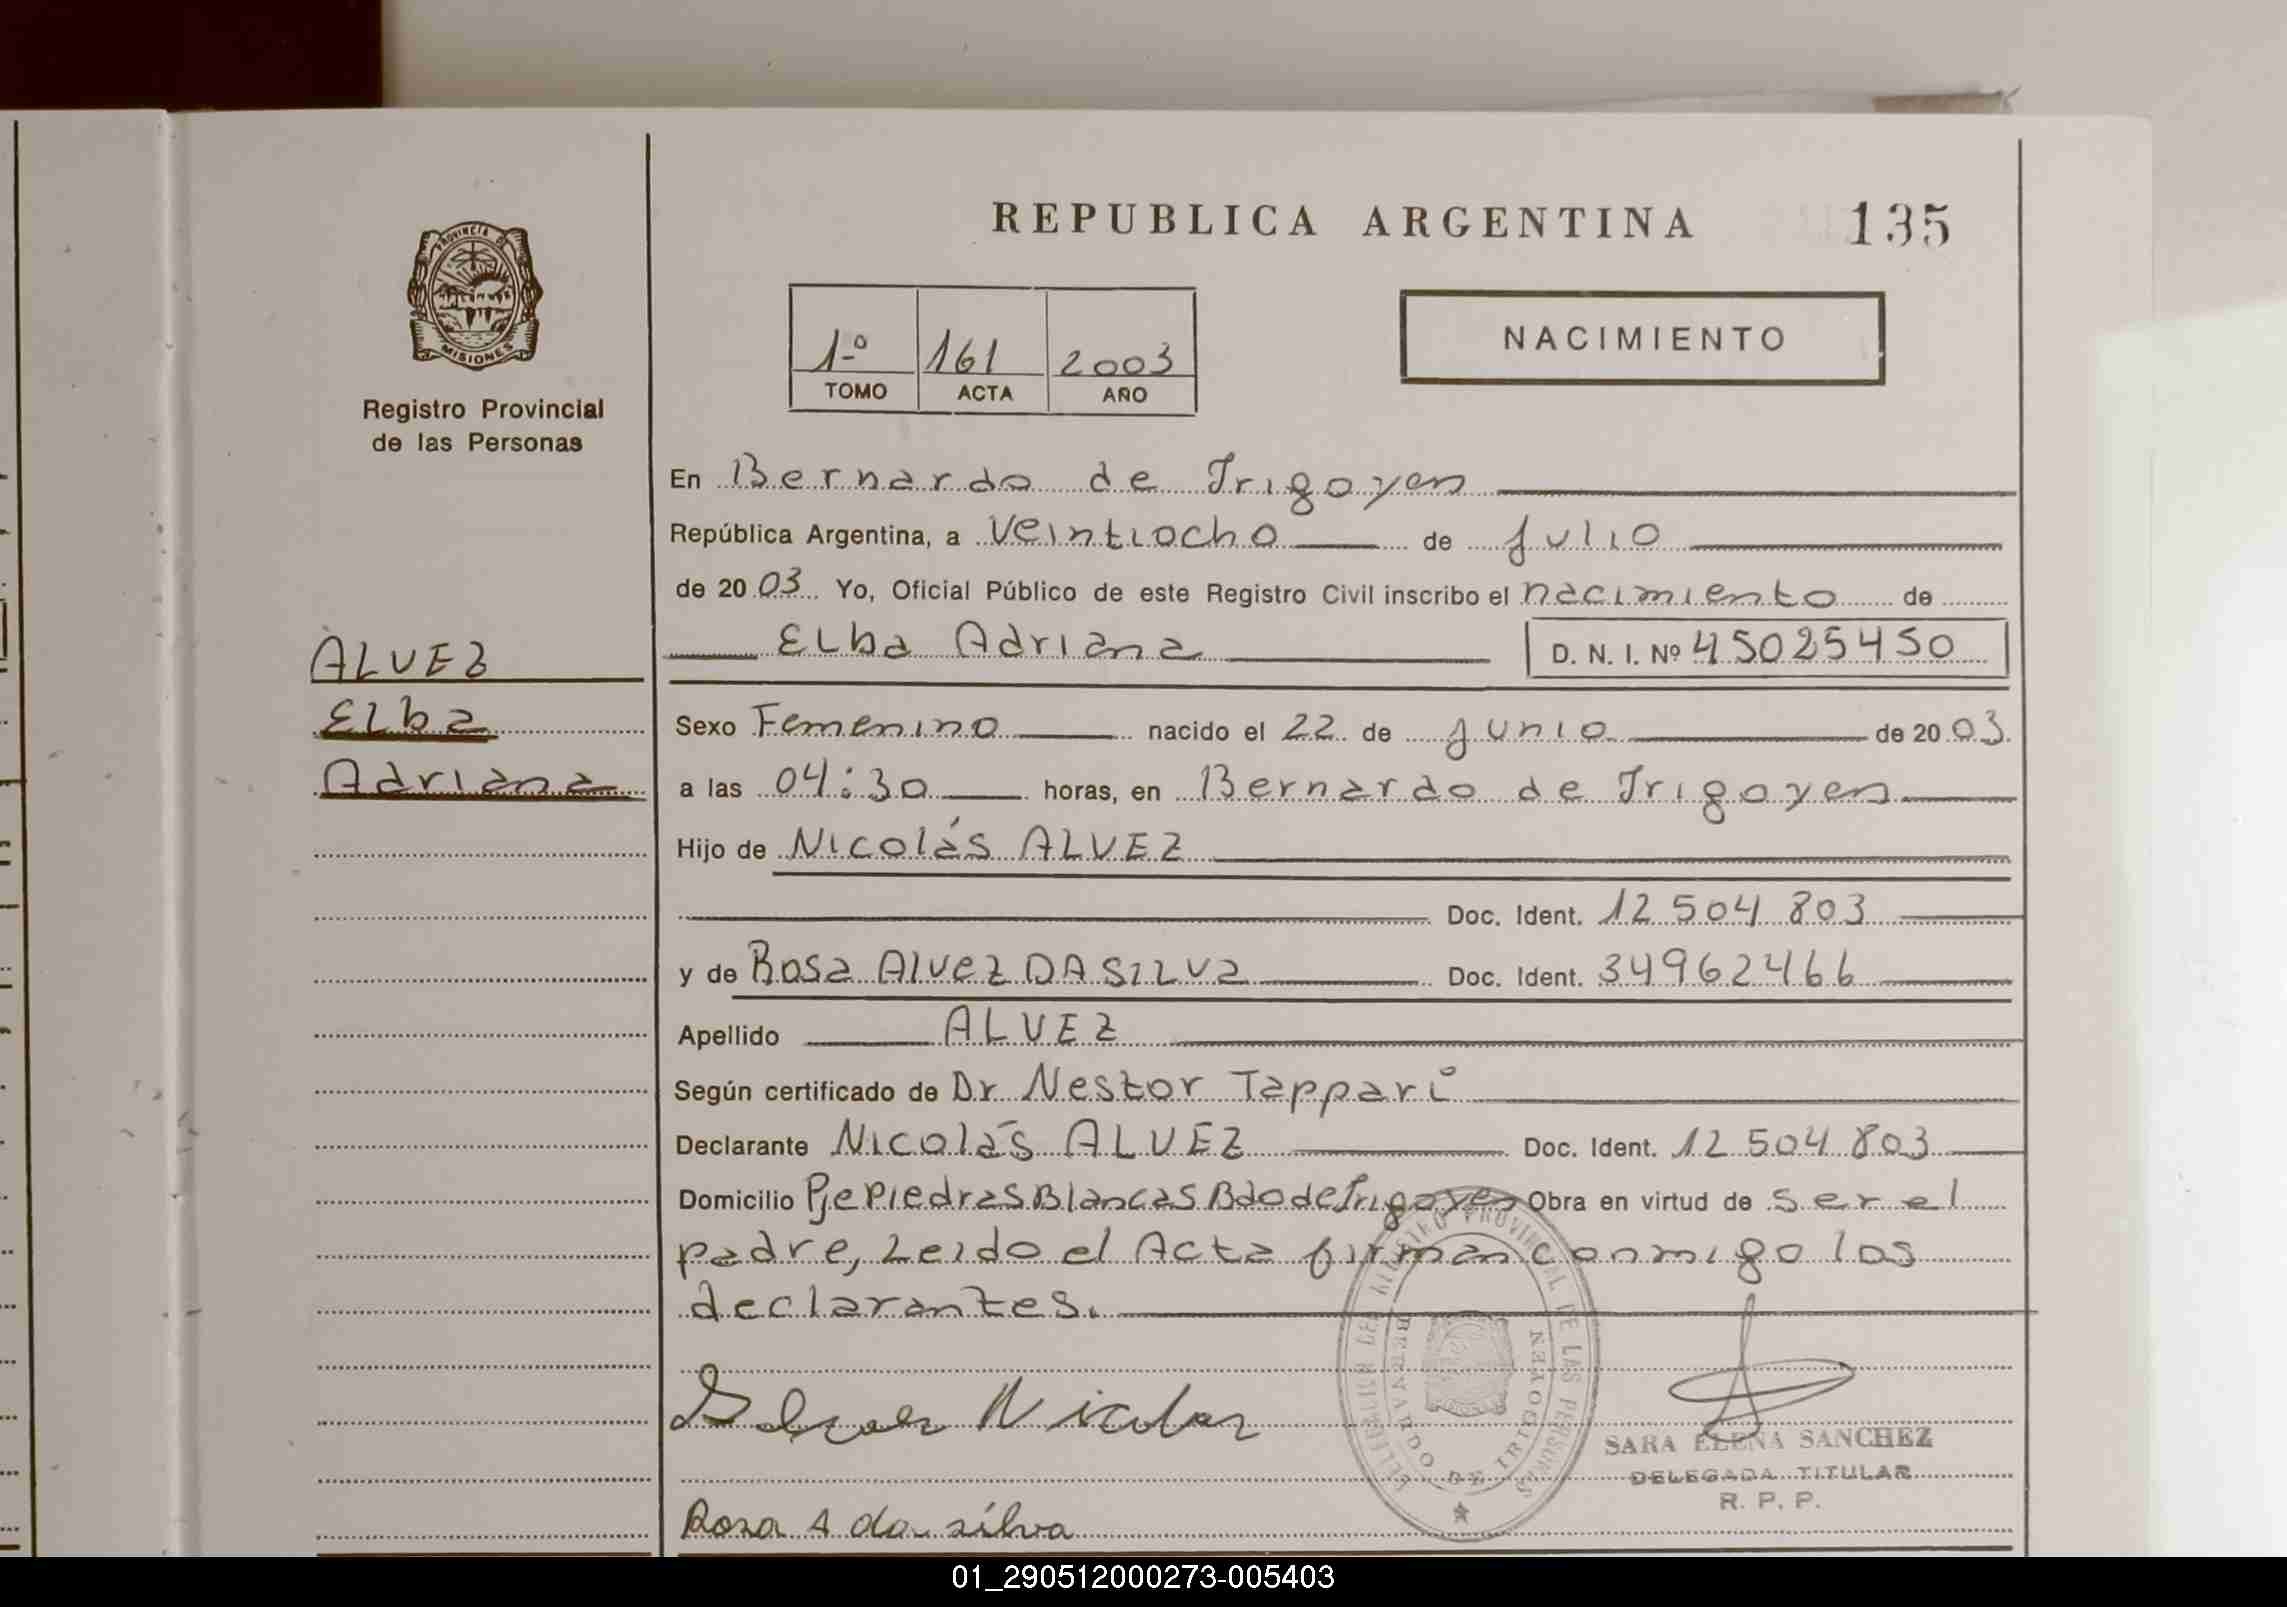 REPUBLICA ARGENTINA 135
PROVINCIA DE
MISIONES
Registro Provincial
de las Personas
1º 161 2003
TOMO ACTA AÑO
NACIMIENTO
En Bernardo de Irigoyen
República Argentina, a Veintiocho de Julio
de 2003 Yo, Oficial Público de este Registro Civil inscribo el nacimiento de
Elba Adriana D. N. I. Nº 45025450
ALVEZ
Elba
Adriana
Sexo Femenino nacido el 22 de junio de 2003
a las 04:30 horas, en Bernardo de Irigoyen
Hijo de Nicolás ALVEZ
Doc. Ident. 12 504 803
y de Rosa Alvez DA SILVa Doc. Ident. 34962466
Apellido ALVEZ
Según certificado de Dr Nestor Tappari
Declarante Nicolás ALVEZ Doc. Ident. 12 504 803
Domicilio Pje Piedras Blancas Bdo de Irigoyen Obra en virtud de ser el
padre, Leido el Acta firman conmigo los
declarantes.
REGISTRO PROVINCIAL DE LAS PERSONAS
BERNARDO DE IRIGOYEN
Nicolas
SARA ELENA SANCHEZ
DELEGADA TITULAR
R. P. P.
Rosa A da silva
01_290512000273-005403